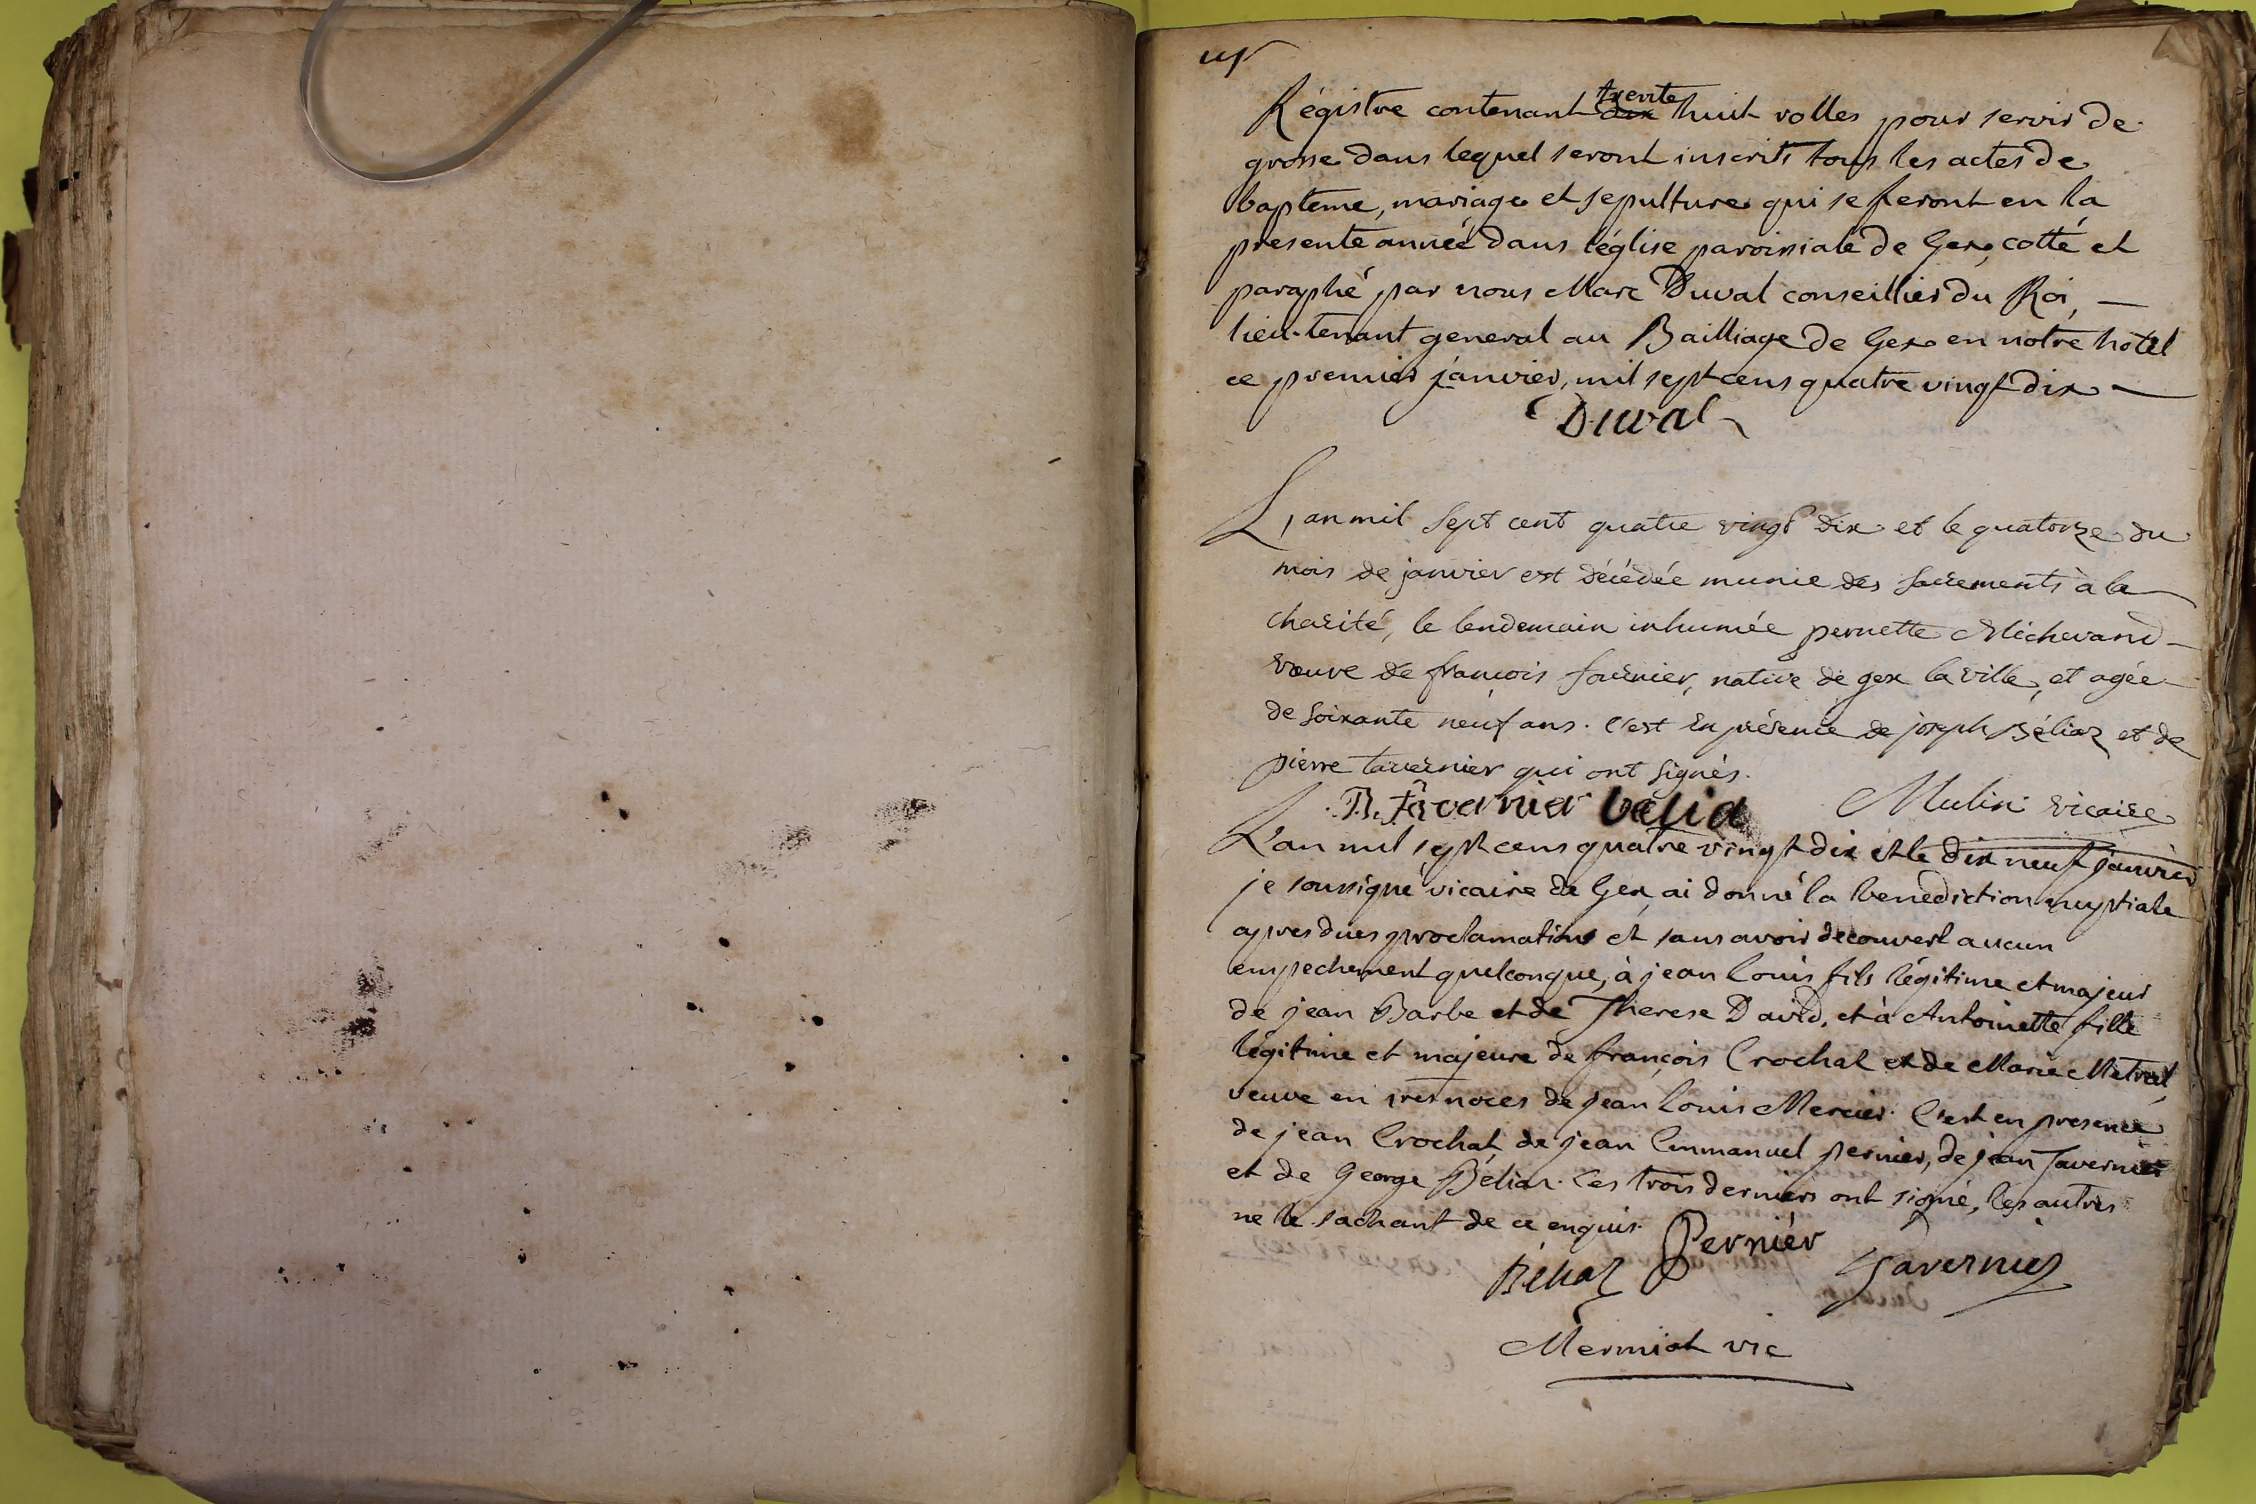 Régistre contenant dix trente huit rolles pour servir de
grosse dans lequel seront inscrits tous les actes de
bapteme, mariage et sepulture qui se feront en la
presente année dans l'église paroissiale de Gex, cotté et
paraphé par nous Marc Duval conseillier du Roi, —
lieu-tenant general au Bailliage de Gex en notre hôtel
ce premier janvier, mil sept cens quatre vingt dix —
Duval
L'an mil sept cent quatre vingt dix et le quatorze du
mois de janvier est décédée munie des sacrements à la
charité, le lendemain inhumée pernette Michevand
veuve de françois fournier, native de gex la ville, et agée
de soixante neuf ans. c'est en présence de joseph Béliaz et de
pierre tavernier qui ont signés.
P. Tavernier belia Mulin vicaire
L'an mil sept cens quatre vingt dix et le dix neuf janvier
je soussigné vicaire de Gex, ai donné la benediction nuptiale
apres dues proclamations et sans avoir decouvert aucun
empechement quelconque, à jean Louis fils légitime et majeur
de jean Barbe et de Therese David, et à Antoinette fille
légitime et majeure de françois Crochat et de Marie Metral,
veuve en 1res noces de jean Louis Mercier. C'est en presence
de jean Crochat de jean Emmanuel pernier, de jean Tavernier
et de George Béliaz. Ces trois derniers ont signé, les autres
ne le sachant de ce enquis.
Béliaz Perniér Tavernier
Mermiat vic